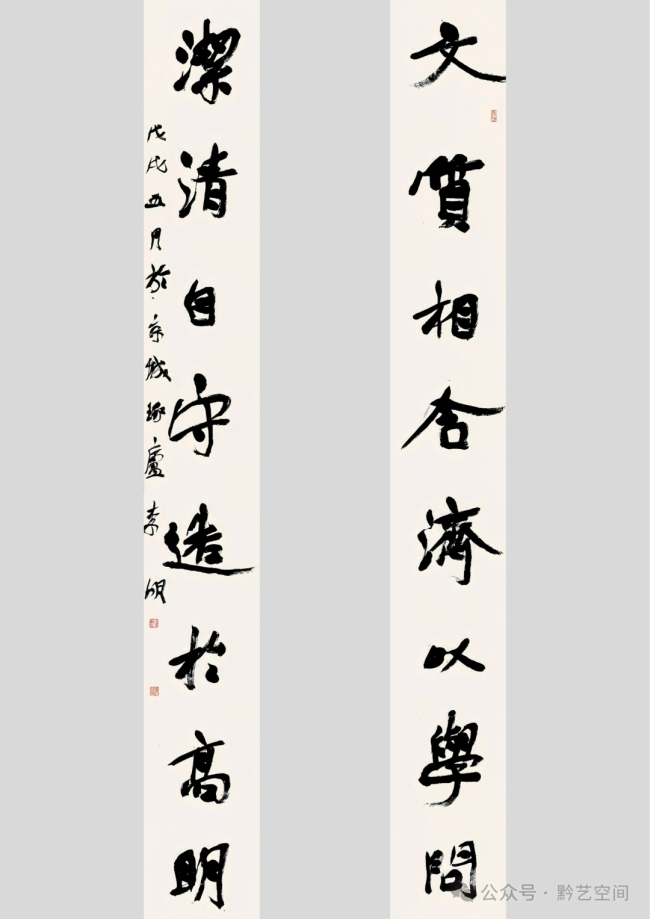 文質相含濟以學問
潔清自守造於高明
戊戌五月於京城琢廬李明
公众号·黔艺空间